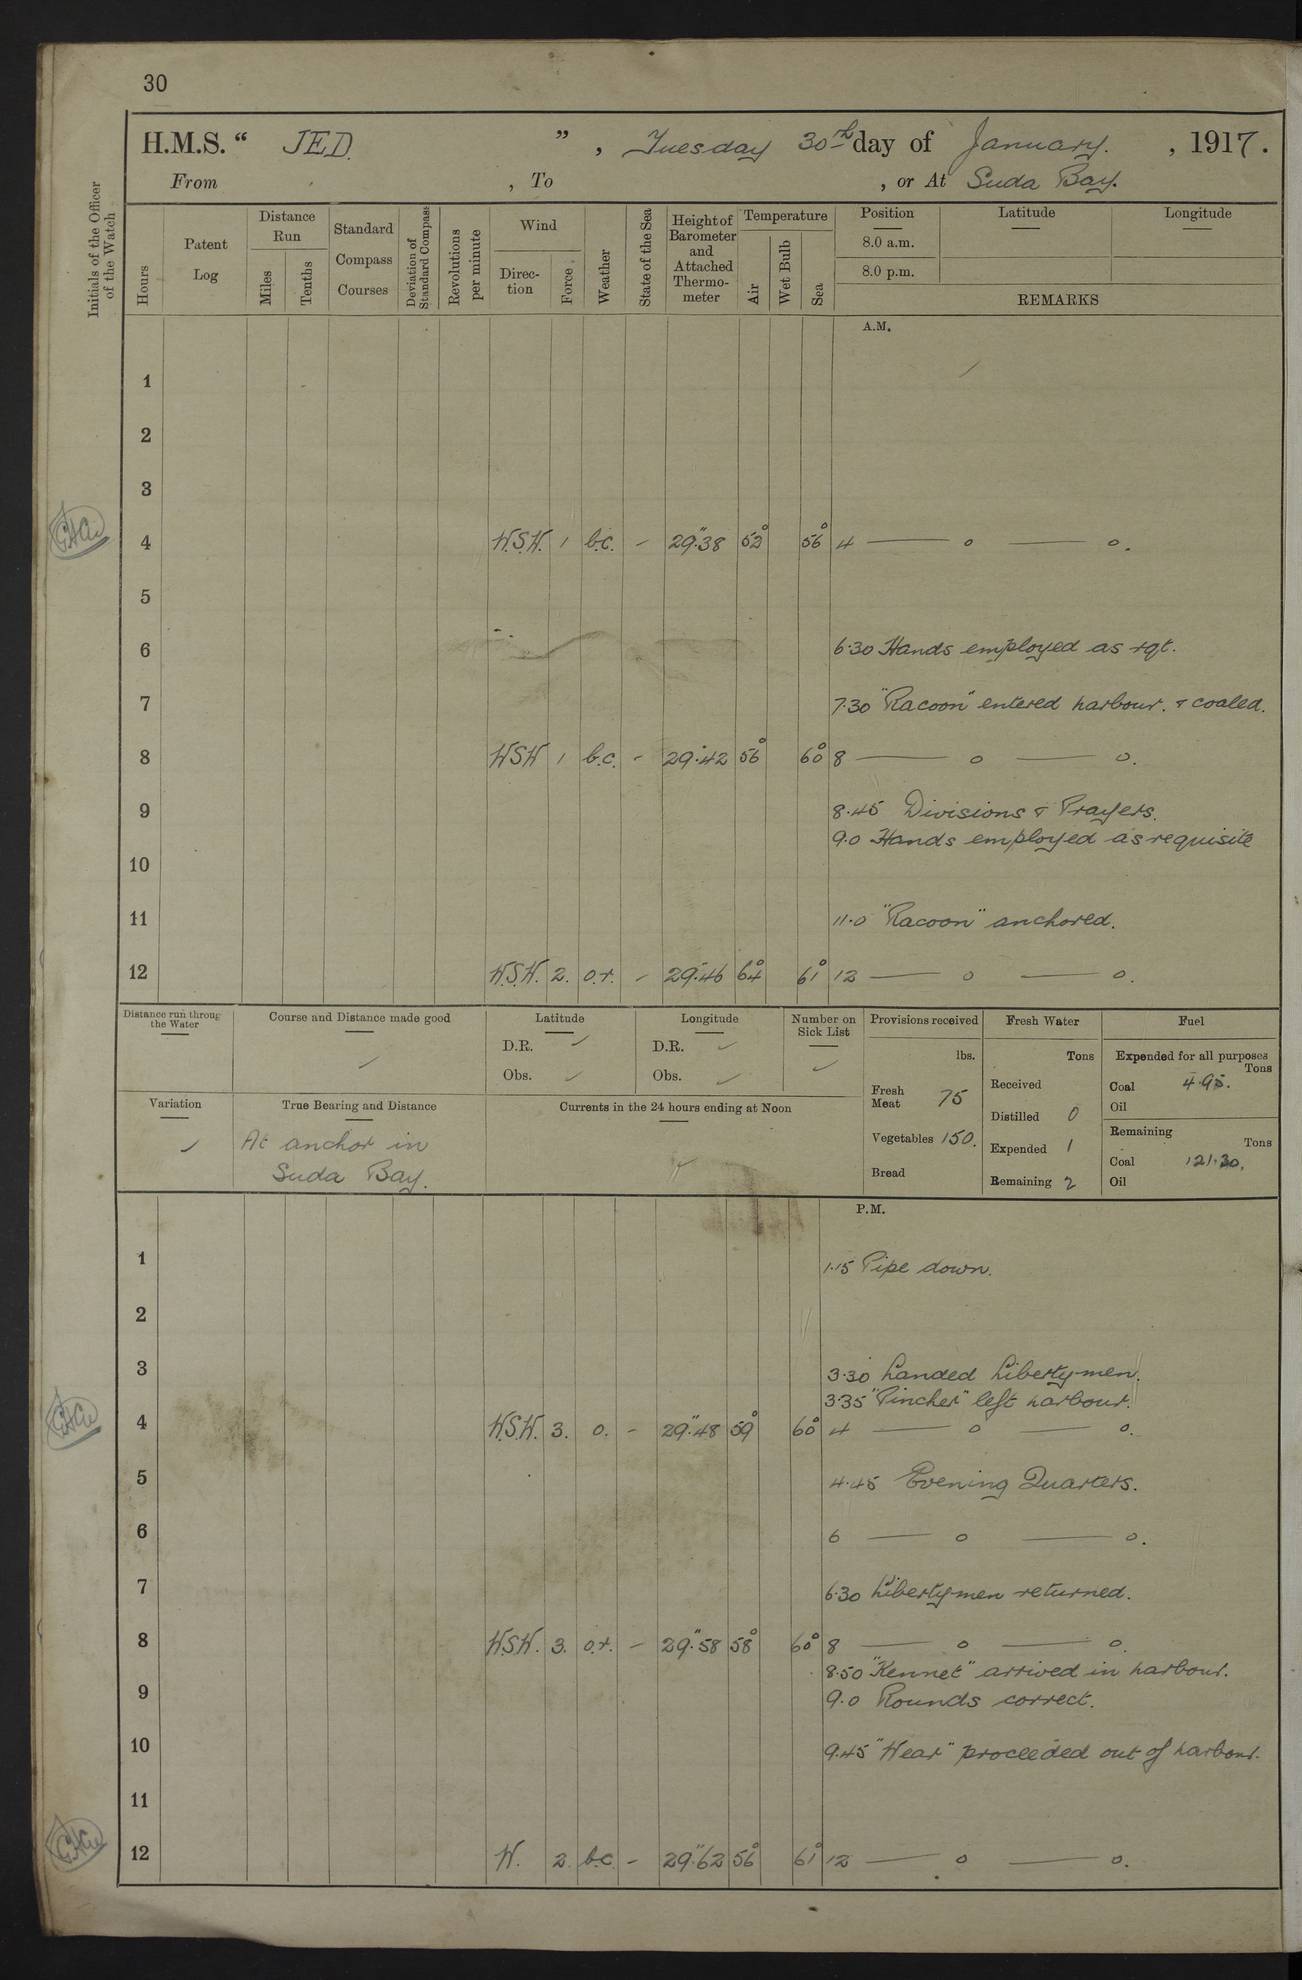 30
H.M.S. “ JED. ” , Tuesday 30th day of January. , 1917.
From , To , or At Suda Bay.
Initials of the Officer of the Watch
Hours
Patent Log
Distance Run
Miles
Tenths
Standard Compass Courses
Deviation of Standard Compass
Revolutions per minute
Wind
Direction
Force
Weather
State of the Sea
Height of Barometer and Attached Thermometer
Temperature
Air
Wet Bulb
Sea
Position Latitude Longitude
8.0 a.m.
8.0 p.m.
REMARKS
A.M.
1
2
3
4 W.S.W. 1 b.c. - 29".38 52° 56° 4 —— o —— o.
5
6 6.30 Hands employed as rqt.
7 7.30 "Racoon" entered harbour. & coaled.
8 WSW 1 b.c. - 29".42 56° 60° 8 —— o —— o.
9 8.45 Divisions & Prayers.
9.0 Hands employed as requisite
10
11 11.0 "Racoon" anchored.
12 W.S.W. 2. o.r. - 29".46 64° 61° 12 —— o —— o.
Distance run through the Water
Course and Distance made good
Latitude
D.R. ✓
Obs. ✓
Longitude
D.R. ✓
Obs. ✓
Number on Sick List
✓
Provisions received
lbs.
Fresh Meat 75
Vegetables 150.
Bread
Fresh Water
Tons
Received
Distilled 0
Expended 1
Remaining 2
Fuel
Expended for all purposes
Tons
Coal 4.95.
Oil
Remaining
Tons
Coal 121.30.
Oil
Variation
✓
True Bearing and Distance
At anchor in
Suda Bay.
Currents in the 24 hours ending at Noon
P.M.
1 1.15 Pipe down.
2
3 3.30 Landed Liberty-men.
3.35 "Pincher" left harbour.
4 W.S.W. 3. o. - 29".48 59° 60° 4 —— o —— o.
5 4.45 Evening Quarters.
6 6 —— o —— o.
7 6.30 Liberty-men returned.
8 W.S.W. 3. o.r. - 29".58 58° 60° 8 —— o —— o.
8.50 "Kennet" arrived in harbour.
9 9.0 Rounds correct.
10 9.45 "Wear" proceeded out of harbour.
11
12 W. 2. b.c. - 29".62 56° 61° 12 —— o —— o.